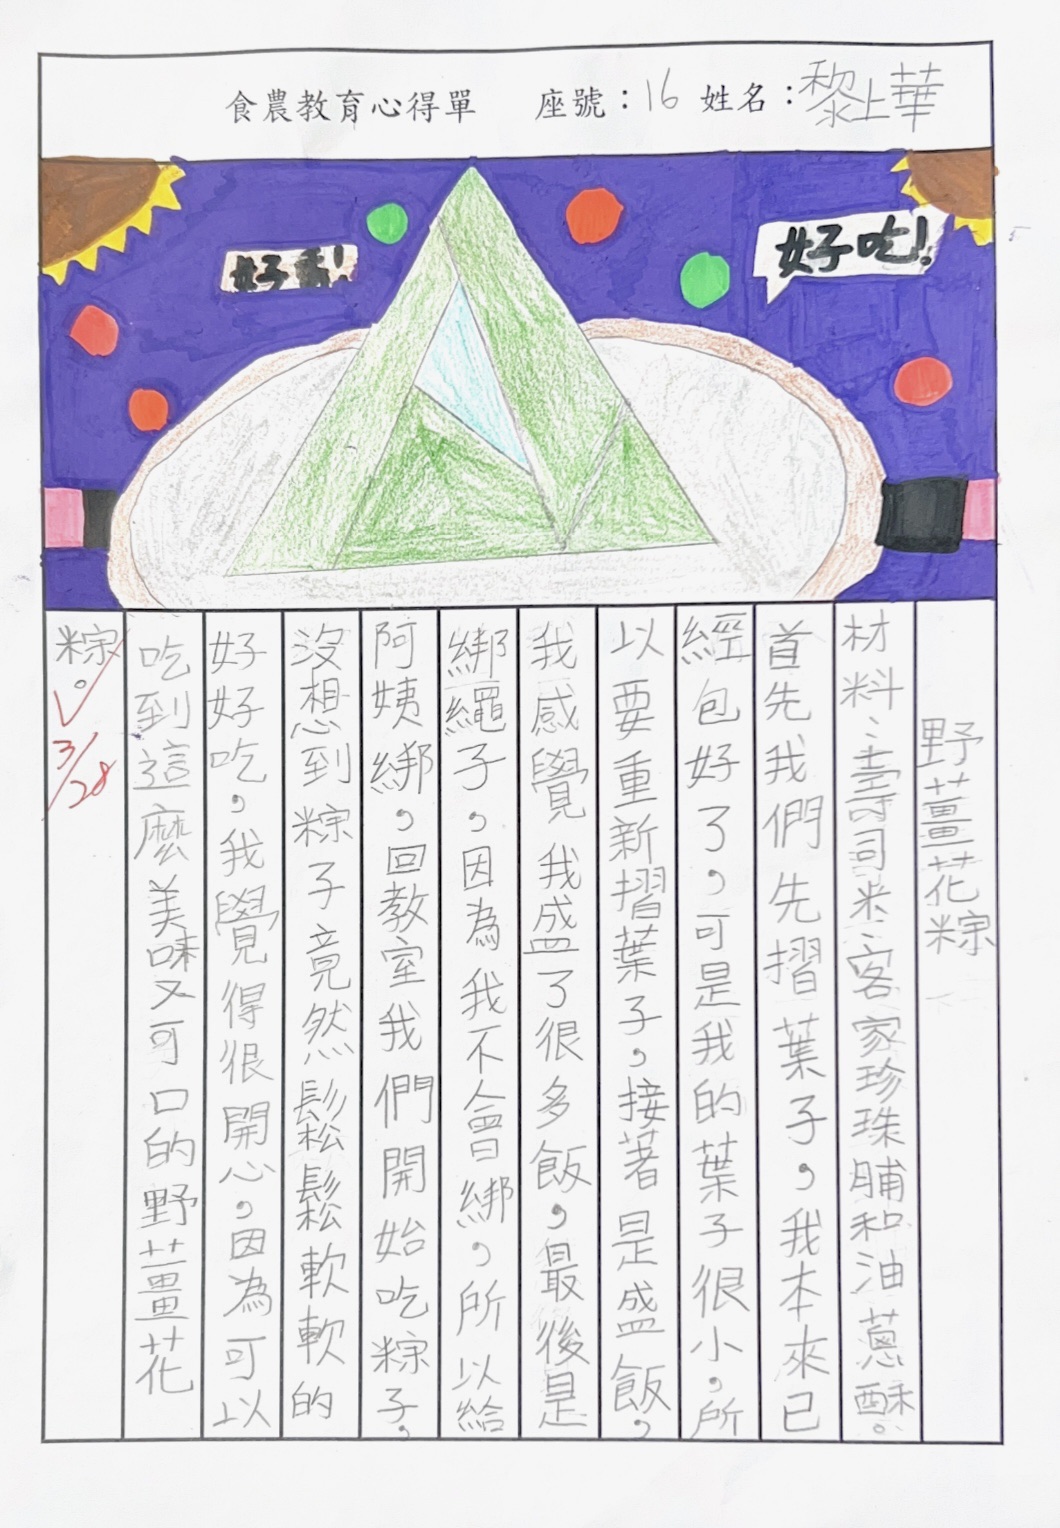 食農教育心得單 座號：16 姓名：黎上華
好香！
好吃！
野薑花粽
材料：壽司米、客家珍珠脯和油蔥酥。
首先我們先摺葉子，我本來已
經包好了，可是我的葉子很小，所
以要重新摺葉子，接著是盛飯，
我感覺我盛了很多飯，最後是
綁繩子，因為我不會綁，所以給
阿姨綁，回教室我們開始吃粽子，
沒想到粽子竟然鬆鬆軟軟的
好好吃，我覺得很開心，因為可以
吃到這麼美味又可口的野薑花
粽。
3/28